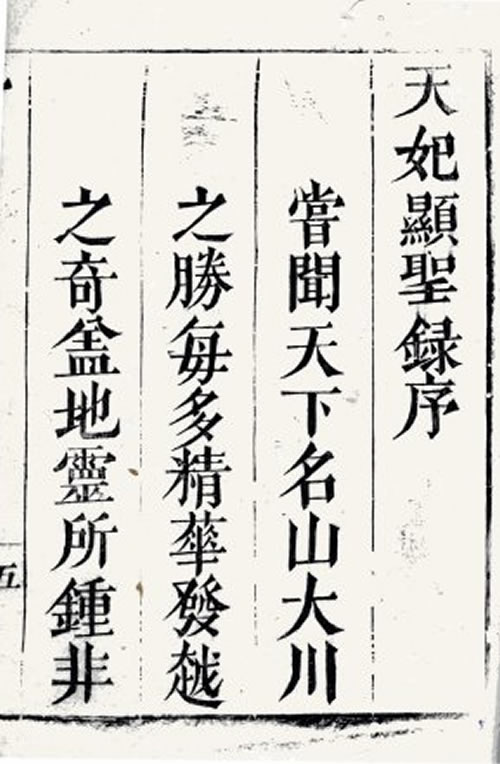 天妃顯聖録序
嘗聞天下名山大川
之勝每多精華發越
之奇葢地靈所鍾非
五